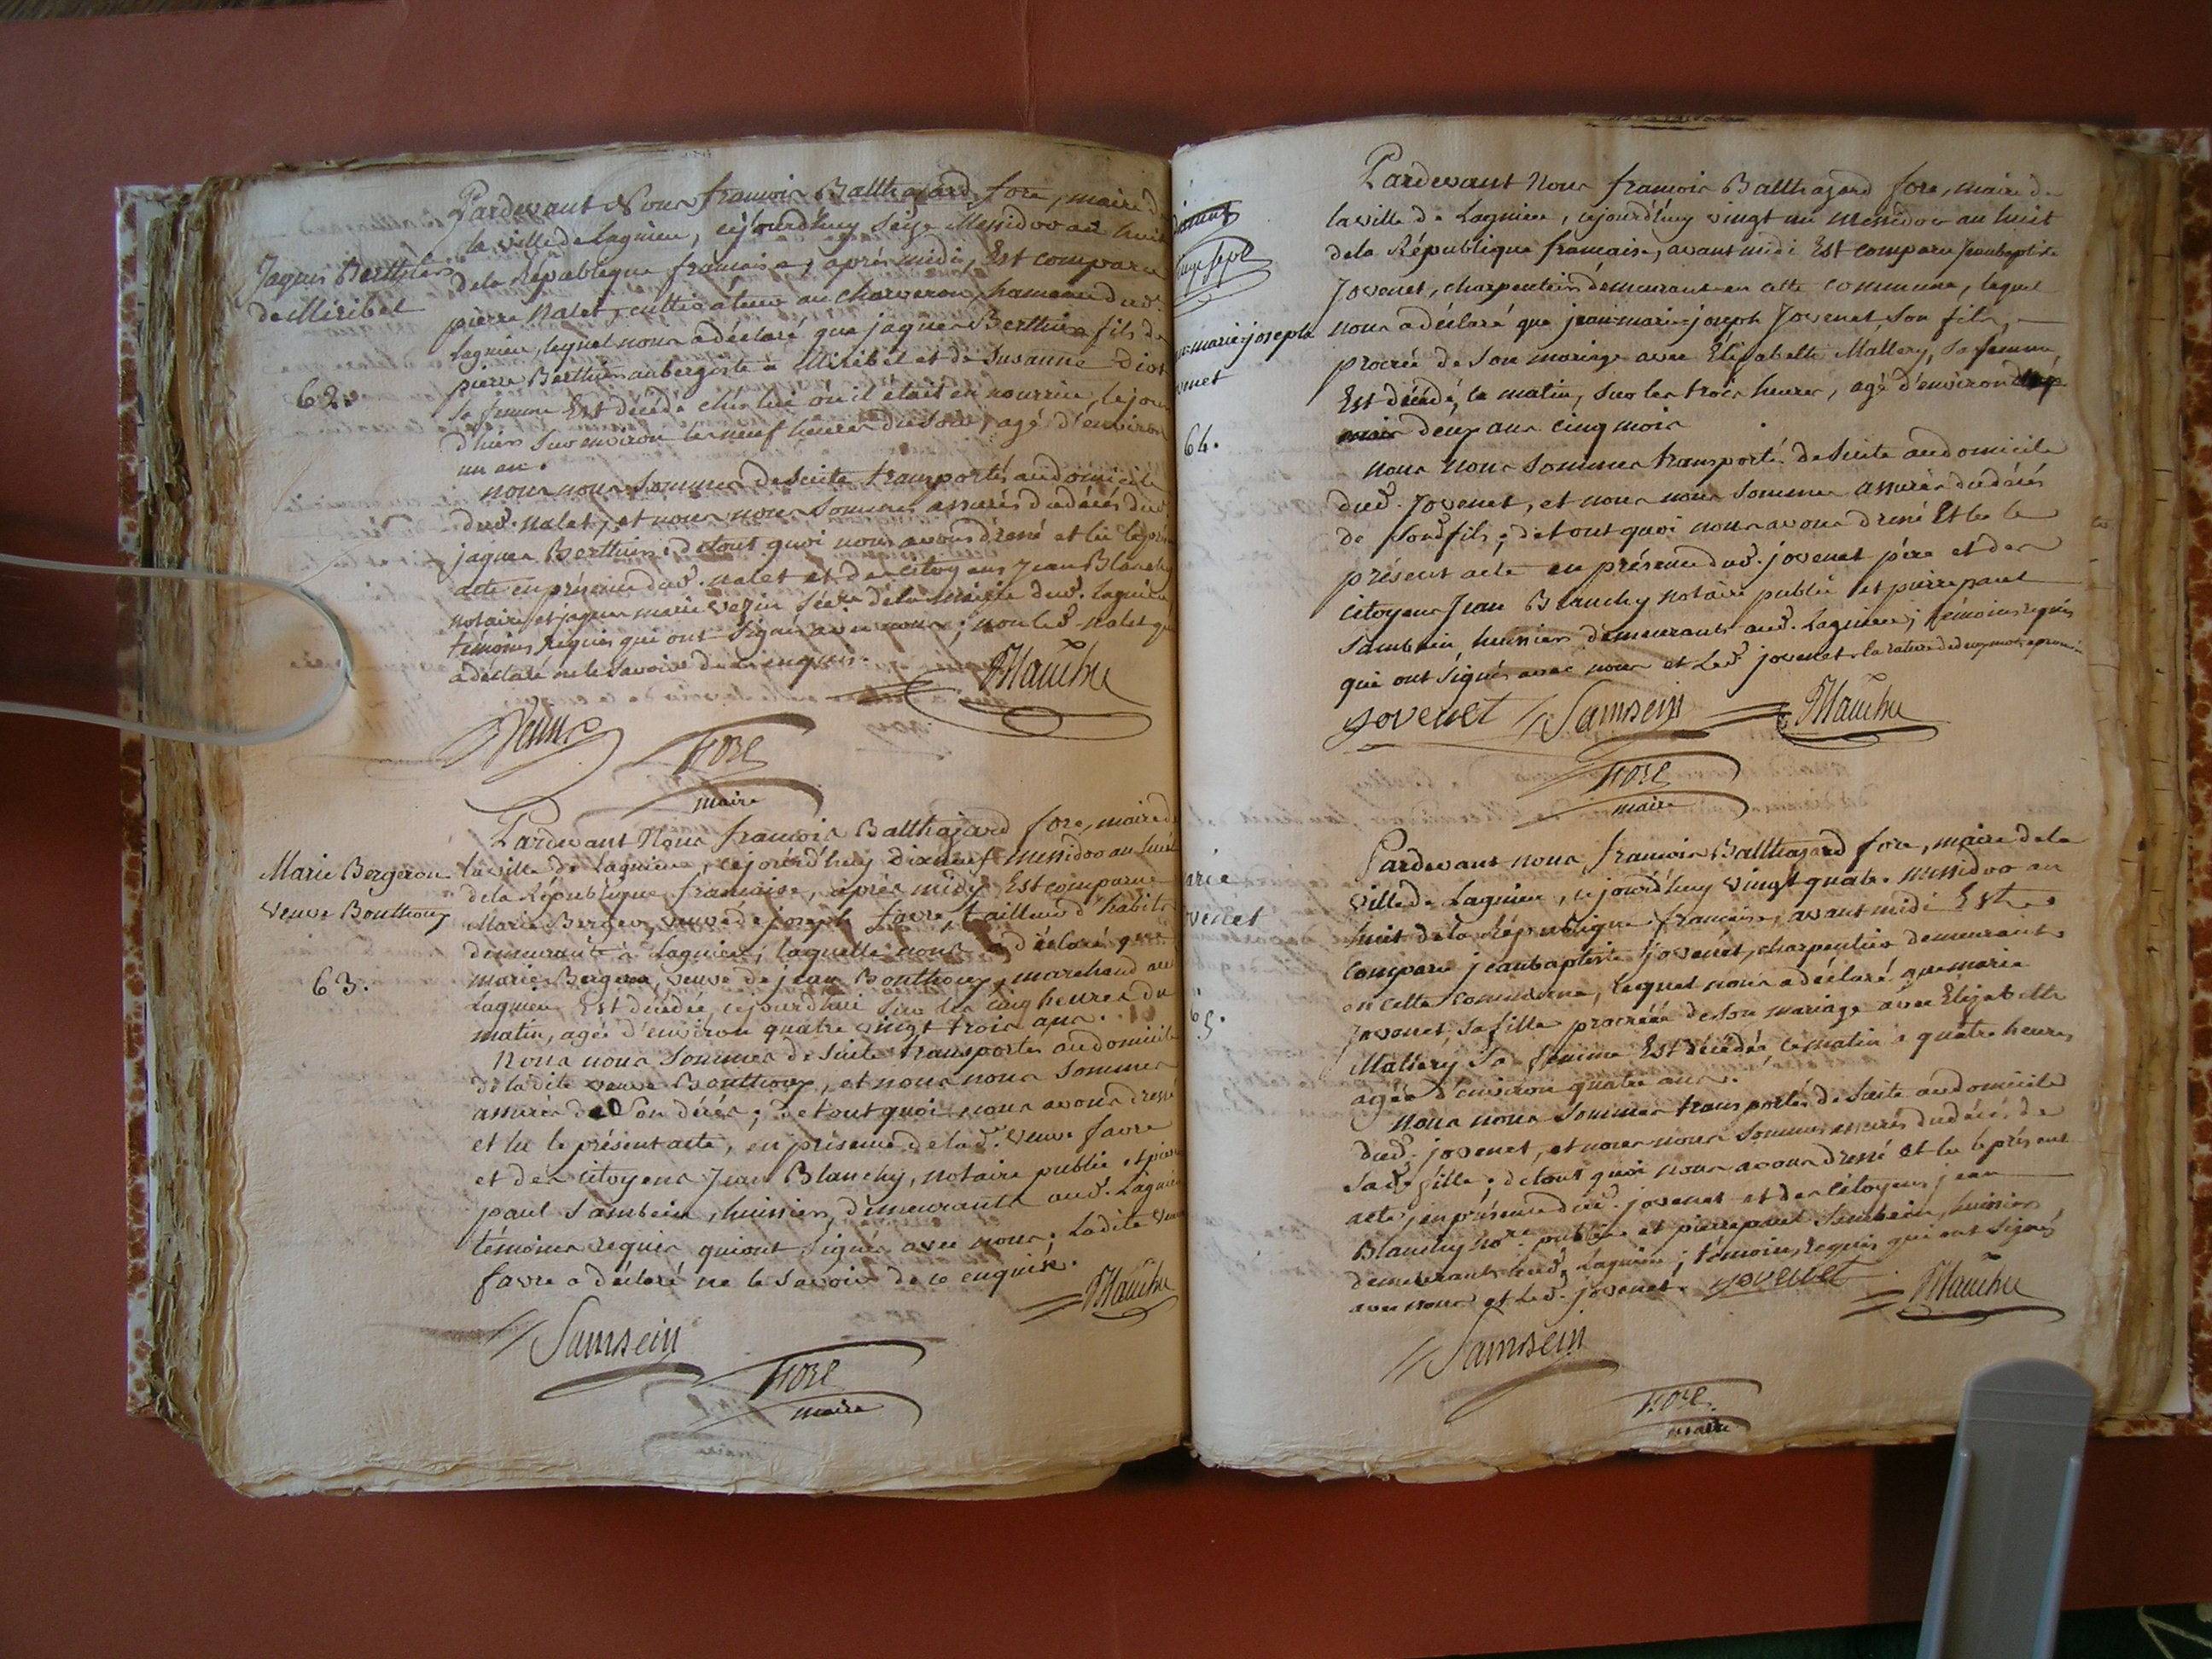 Pardevant Nous françois Balthazard fore, maire de
la ville de Lagnieu, cejourd'huy seize Messidor an huit
de la République francaise, après midi, Est comparu
pierre Nalet, cultivateur au Charveron, hameau dud.
Lagnieu, lequel nous a déclaré que jaques Berthier fils de
pierre Berthier aubergiste à Miribel et de Susanne
sa femme Est décédé chés lui où il était en nourrice, le jour
d'hier sur environ les neuf heures du soir, agé d'environ
un an.
nous nous sommes de suite transportés au domicile
dud. nalet, et nous nous sommes assurés du décés dud.
jaques Berthier; de tout quoi nous avons dressé et lu le présent
acte en présence dud. nalet et des citoyens jean Blanchy
notaire, et jaques marie vezin secre. de la mairie dud. Lagnieu
témoins requis qui ont signés avec nous; non led. nalet qui
a déclaré ne le savoir de ce enquis.
Jaques Berthier
de Miribel
62.
Blanchy
fore
maire
Pardevant Nous francois Balthazard fore, maire de
la ville de Lagnieu, cejourd'huy dixneuf messidor an huit
de la République francaise, après midy Est comparue
Marie Berger, veuve de joseph favre, tailleur d'habits
demeurante à Lagnieu, laquelle nous a déclaré que
marie Bergeron, veuve de jean Bouthoux, marchand au
Lagnieu Est décédée cejourd'hui sur les cinq heures du
matin, agée d'environ quatre vingt trois ans.
Nous nous sommes de suite transportés au domicile
de ladite veuve Bouthoux, et nous nous sommes
assurés de son décés; de tout quoi nous avons dressé
et lu le présent acte, en présence de lad. veuve favre
et des citoyens Jean Blanchy, notaire public et pierre
paul Sambein, huissier, demeurants aud. Lagnieu
témoins requis qui ont signés avec nous; Ladite veuve
favre a déclaré ne le savoir de ce enquise.
Marie Bergeron
Veuve Bouthoux
63.
Blanchy
Sambein
fore
maire
Pardevant Nous francois Balthazard fore, maire de
la ville de Lagnieu, cejourd'huy vingt un messidor an huit
de la République francaise, avant midi Est comparu Jeanbaptiste
Jovenet, charpentier demeurant en cette commune, lequel
nous a déclaré que jean-marie-joseph Jovenet, son fils,
procréé de son mariage avec Elisabeth Mallery, sa femme,
Est décédé, ce matin, sur les trois heures, agé d'environ
deux ans cinq mois
nous nous sommes transportés de suite au domicile
dud. Jovenet, et nous nous sommes assurés du décés
de sond. fils; de tout quoi nous avons dressé Et lu le
présent acte en présence dud. jovenet père et des
citoyens Jean Blanchy notaire public et pierre paul
Sambein, huissier demeurants aud. Lagnieu; témoins requis
qui ont signés avec nous et led. jovenet. la rature de deux mots approuvée
marie-joseph
64.
jovenet Sambein Blanchy
fore
maire
Pardevant nous francois Balthazard fore, maire de la
ville de Lagnieu, cejourd'huy vingt quatre messidor an
huit de la République francaise, avant midi Est
comparu jeanbaptiste jovenet, charpentier demeurant
en cette commune, lequel nous a déclaré que marie
Jovenet, sa fille procréée de son mariage avec Elisabeth
Mallery sa femme Est décédée, ce matin à quatre heures,
agée d'environ quatre ans.
nous nous sommes transportés de suite au domicile
dud. jovenet, et nous nous sommes assurés du décés de
sad. fille; de tout quoi nous avons dressé et lu le présent
acte, en présence dud. jovenet et des citoyens jean
Blanchy nore. public et pierre paul Sambein, huissier
demeurants aud. Lagnieu; témoins requis qui ont signés
avec nous et led. jovenet. jovenet
65.
Blanchy
Sambein
fore
maire